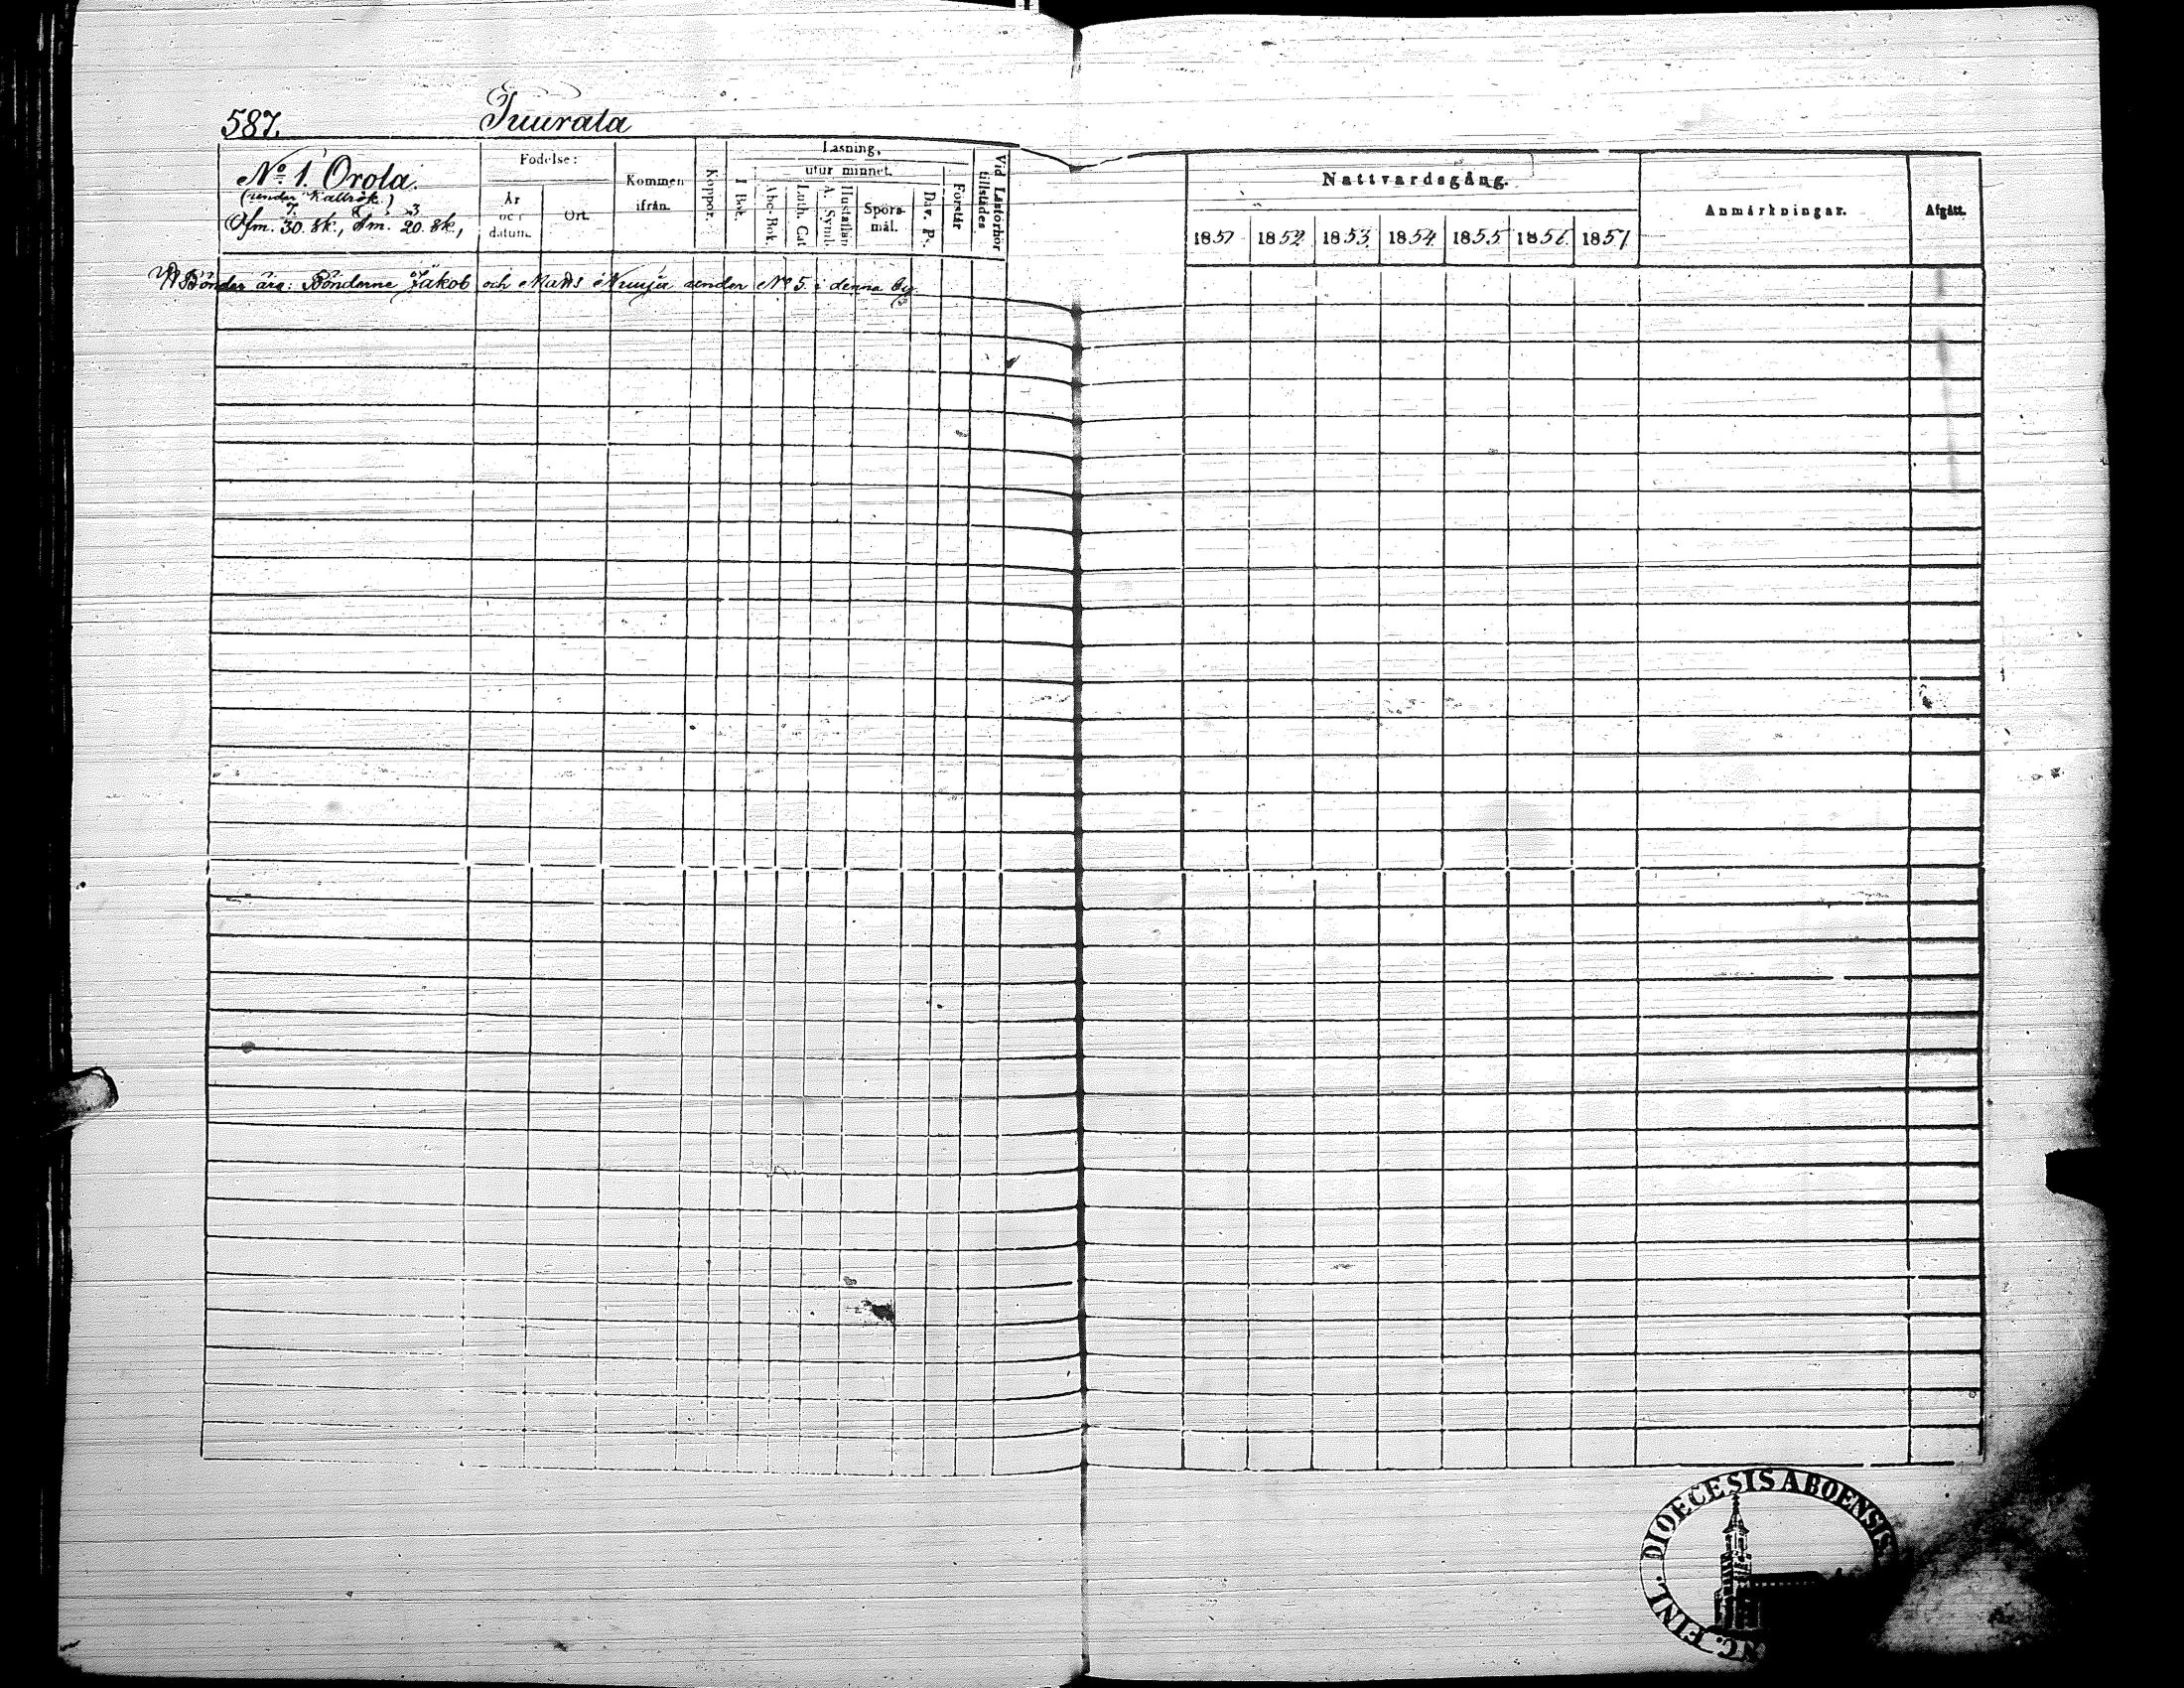 587. Juurala
No 1. Orola.
(under Kallrök.)
Ofm. 30. sk., Sm. 20. sk.,
Födelse:
År och datum.
Ort.
Kommen ifrån.
Koppor.
Läsning,
utur minnet.
I Bok.
Abc-Bok.
Luth. Cat.
A. Symb.
Hustaflan
Spörsmål.
Dav. Ps.
Förstår
Vid Läsförhör tillstädes
Nattvardsgång.
1851 1852 1853 1854 1855 1856 1857
Anmärkningar.
Afgått.
Bönder äro: Bönderne Jakob och Matts under No 5. i denna by
DIOECESIS ABOENSIS
FINL.